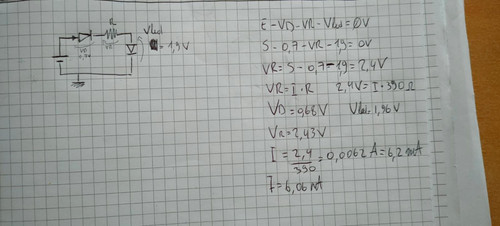 R
Vled
= 1,9V
E-VD-VR-Vled=0V
5-0,7-VR-1,9=0V
VR=5-0,7-1,9=2,4V
VR=I·R 2,4V=I·390Ω
VD=0,68V Vled=1,96V
VR=2,43V
I=2,4/390=0,0062A=6,2mA
I=6,06mA